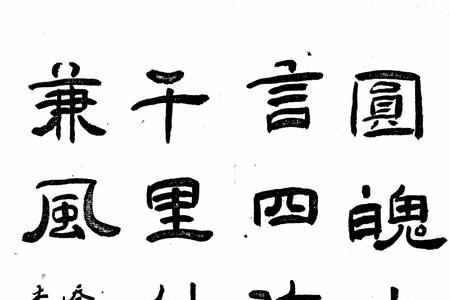 圓魄
言四
千里
兼風